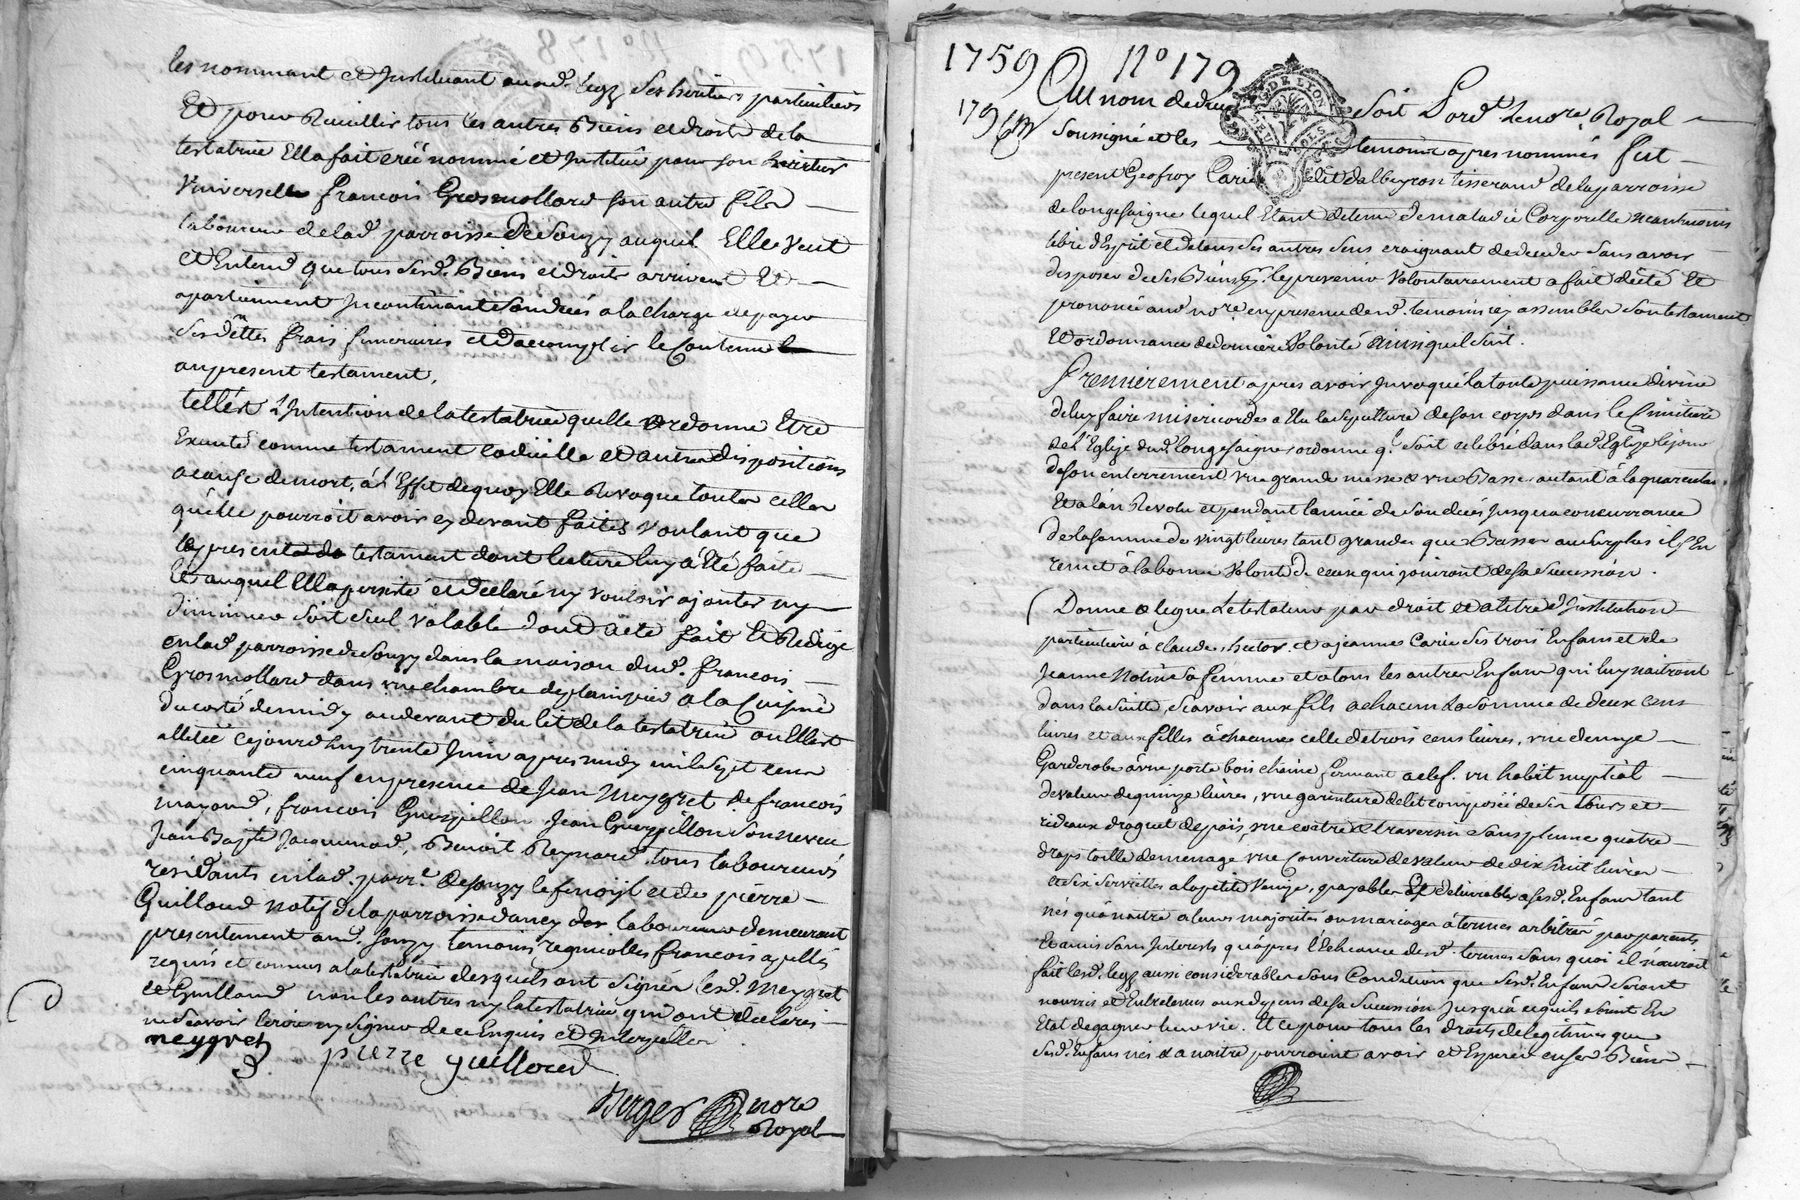 les nommant et Instituant aud. legz ses heritiers particuliers
Et pour Recuillir tous les autres Biens et droits de la
testatrice Ella fait créé nommé et Institué pour son heritier
Universelle françois Grosmollard son autre fils
laboureur de lad. parroisse de Souzy auquel Elle veut
et Entend que tous sesd. Biens et droits arrivent Et
apartiennent Incontinant son decés a la charge de payer
ses dettes frais funeraires et d'accomplir le Contenu
au present testament,
tell'est l'Intention de la testatrice quelle ordonne Etre
Executé comme testament codicille et autres dispositions
a cause de mort, à l'Effet de quoy Elle Revoque toutes celles
qu'elle pourroit avoir cy devant faites voulant que
le present testament dont lecture luy a Eté faite
Et auquel Ella persisté et declaré ny vouloir ajouter ny
diminuer soit seul valable dont acte fait Et Redigé
en lad. parroisse de Souzy dans la maison dud. françois
Grosmollard dans une chambre de plainpied a la Cuisine
du coté de midy au devant du lit de la testatrice ou Ellest
allitée cejourdhuy trente Juin apres midy mil sept cens
cinquante neuf en presence de Jean Meygret de françois
mayoud, françois Guerpillon Jean Guerpillon son neveu
Jean Bapte Jacquemod, Benoit Reynard tous laboureurs
residants en lad. parr.e de Souzy le fenoyl et de pierre
Guilloud natif de la parroisse dancy laboureur demeurant
presentement aud. Souzy temoins regnicolles francois apellés
requis et connus a la testatrice desquels ont signés lesd. Meygret
et Guilloud non les autres ny la testatrice qui ont declarés
ne scavoir ecrire ny signer de ce Enquis et Interpellés
neygret
pierre guilloud
Berger nore
Royal
1759 No 179
179 Au nom de dieu soit Pard.t le nore. Royal
Soussigné et les temoins apres nommés fut
present Geofroy Carie dit dalbeyron tisserand de la parroisse
de longesaigne lequel Etant detenu de maladie Corporelle neantmoins
libre d'Esprit et de tous ses autres sens craignant de deceder sans avoir
disposer de ses Biens le prevenir volontairement a fait dicté Et
prononcé aud. nore en presence desd. temoins icy assemblés son testament
Et ordonnance de derniere volonté ainsi quil suit.
Premierement apres avoir Invoqué la toute puissance divine
de luy faire misericorde a Elu la sepulture de son corps dans le Cimitiere
de l'Eglise dud. longesaigne ordonne q.l soit celebré dans lad. Eglise le jour
de son enterrement une grande messe & une Basse autant à la quarentaine
Et a l'an Revolu et pendant l'année de son decés jusqu'a concurrance
de la somme de vingt livres tant grandes que Basses au surplus il s'En
remet à la bonne volonté de ceux qui jouiront de sa succession.
Donne & legue le testateur par droit et a titre d'Institution
particuliere à Claude, hector, et a jeannes Carie ses trois Enfans et de
Jeanne Notin sa femme et a tous les autres Enfans qui luy naitront
dans la suitte, Scavoir aux fils a chacun la somme de deux cens
livres et aux filles à chacunes celle de trois cens livres, une demye
Garderobe à une porte bois chêne fermant a clef. un habit nuptial
de valeur de quinze livres, une garniture de lit composée de six tours et
rideaux droguet de païs, une coitre & traversin sans plume quatre
draps toille de menage, une Couverture de valeur de dix huit livres
et six serviettes a la petite Venize, payables et delivrables a sesd. Enfans tant
nés qu'à naitre a leurs majorités ou mariages à termes arbitrés par parents
Et amis sans Interests qu'apres l'Echeance desd. termes sans quoi il n'auroit
fait lesd. legz aussi considerables sous Condition que sesd. Enfans seront
nourris et Entretenus aux depens de sa succession Jusqu'à ce quils soient En
Etat de gagner leur vie. Et ce pour tous les droits de legitimes que
sesd. Enfans nés & a naitre pourroient avoir et Esperer en ses Biens